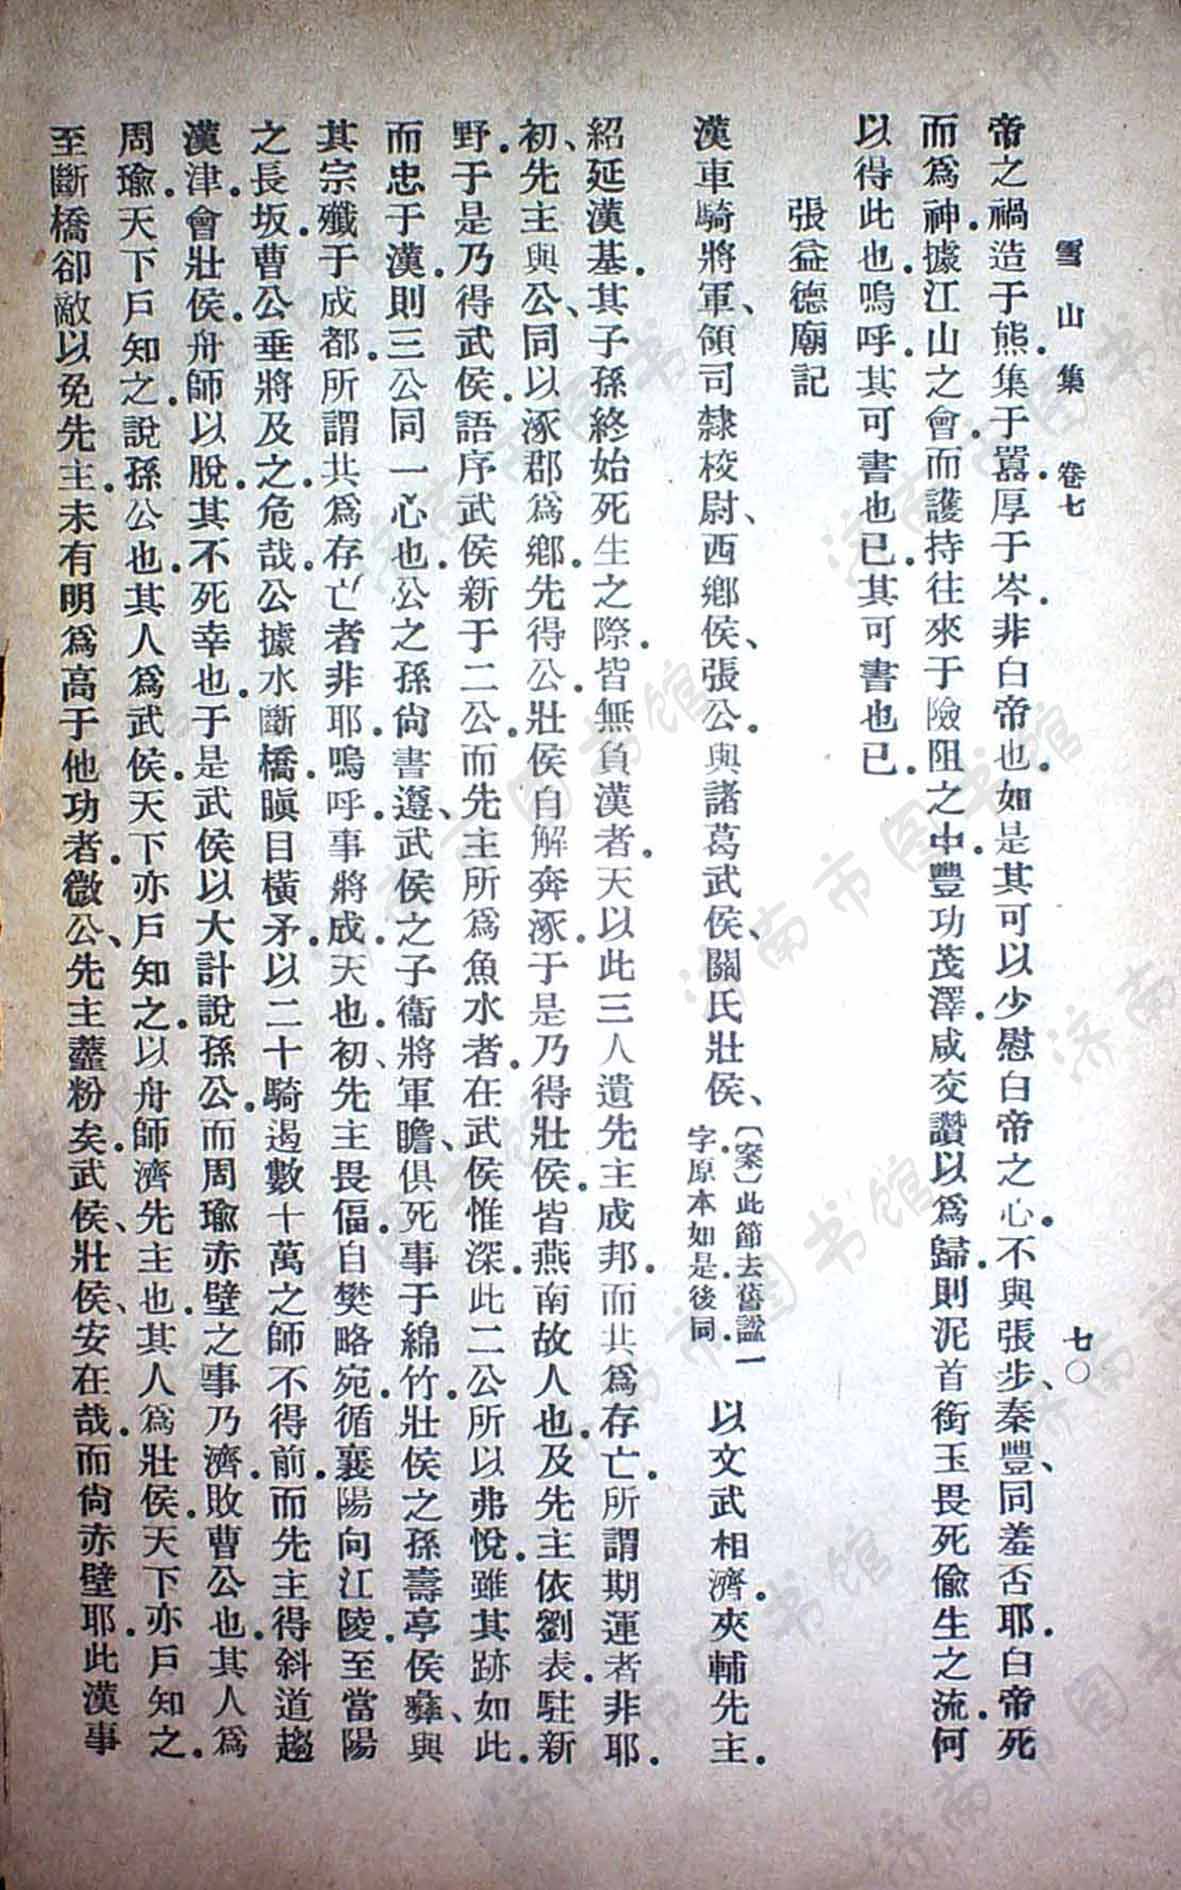 雪山集 卷七 七〇
帝之禍造于熊．集于囂．厚于岑．非白帝也．如是其可以少慰白帝之心．不與張步、秦豐、同羞否耶．白帝死
而爲神．據江山之會．而護持往來于險阻之中．豐功茂澤．咸交讚以爲歸．則泥首銜玉畏死偷生之流．何
以得此也．嗚呼．其可書也已．其可書也已．
張益德廟記
漢車騎將軍、領司隸校尉、西鄕侯、張公．與諸葛武侯、關氏壯侯、〔案〕此節去舊諡一字．原本如是．後同．以文武相濟．夾輔先主．
紹延漢基．其子孫終始死生之際．皆無負漢者．天以此三人遺先主成邦．而共爲存亡．所謂期運者非耶．
初、先主與公、同以涿郡爲鄕．先得公．壯侯自解奔涿．于是乃得壯侯．皆燕南故人也．及先主依劉表．駐新
野．于是乃得武侯．語序武侯新于二公．而先主所爲魚水者．在武侯惟深．此二公所以弗悅．雖其跡如此．
而忠于漢．則三公同一心也．公之孫尙書遵、武侯之子衞將軍瞻、俱死事于綿竹．壯侯之孫壽亭侯彝、與
其宗殲于成都．所謂共爲存亡者非耶．嗚呼．事將成．天也．初、先主畏偪．自樊略宛．循襄陽向江陵．至當陽
之長坂．曹公垂將及之．危哉．公據水斷橋．瞋目橫矛．以二十騎遏數十萬之師不得前．而先主得斜道趨
漢津．會壯侯．舟師以脫．其不死幸也．于是武侯以大計說孫公．而周瑜赤壁之事乃濟．敗曹公也．其人爲
周瑜．天下戶知之．說孫公也．其人爲武侯．天下亦戶知之．以舟師濟先主也．其人爲壯侯．天下亦戶知之．
至斷橋卻敵以免先主．未有明爲高于他功者．微公、先主虀粉矣．武侯、壯侯、安在哉．而尙赤壁耶．此漢事